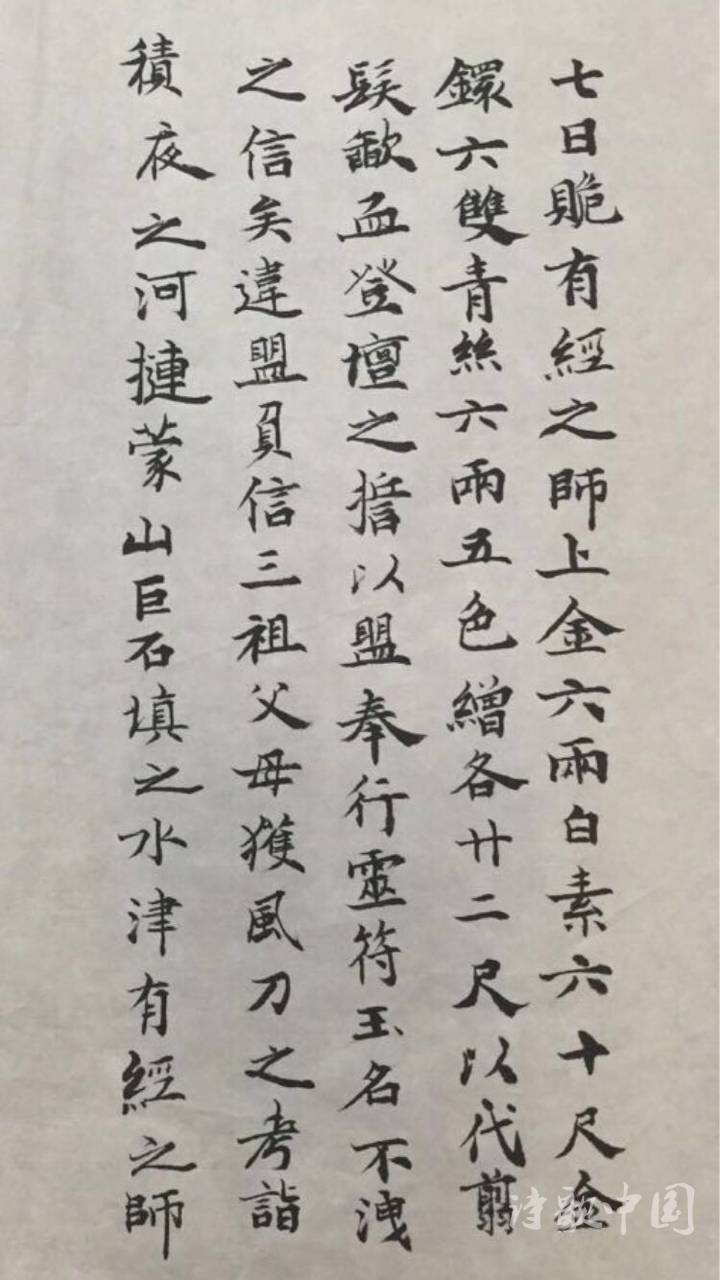 七日跪有經之師上金六兩白素六十尺金
鐶六雙青絲六兩五色繒各廿二尺以代翦
髮歃血登壇之誓以盟奉行靈符玉名不洩
之信矣違盟負信三祖父母獲風刀之考詣
積夜之河摙蒙山巨石填之水津有經之師
诗歌中国